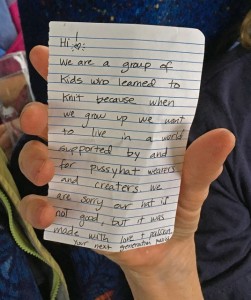 Hi!
We are a group of
kids who learned to
knit because when
we grow up we want
to live in a world
supported by and
for pussyhat wearers
and creaters. We
are sorry our hat is
not good, but it was
made with love + passion.
Your next generation